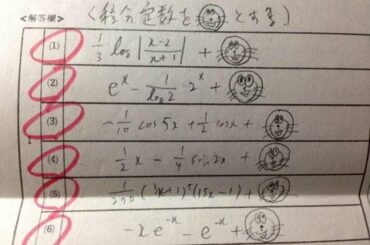 <解答欄> (積分定数を とする)
(1) 1/3 log|x-2/x+1| +
(2) e^x - 1/log2 · 2^x +
(3) -1/10 cos5x + 1/2 cosx +
(4) 1/2 x - 1/4 sin2x +
(5) (3x+1)^5 (15x-1) +
(6) -xe^-x - e^-x +